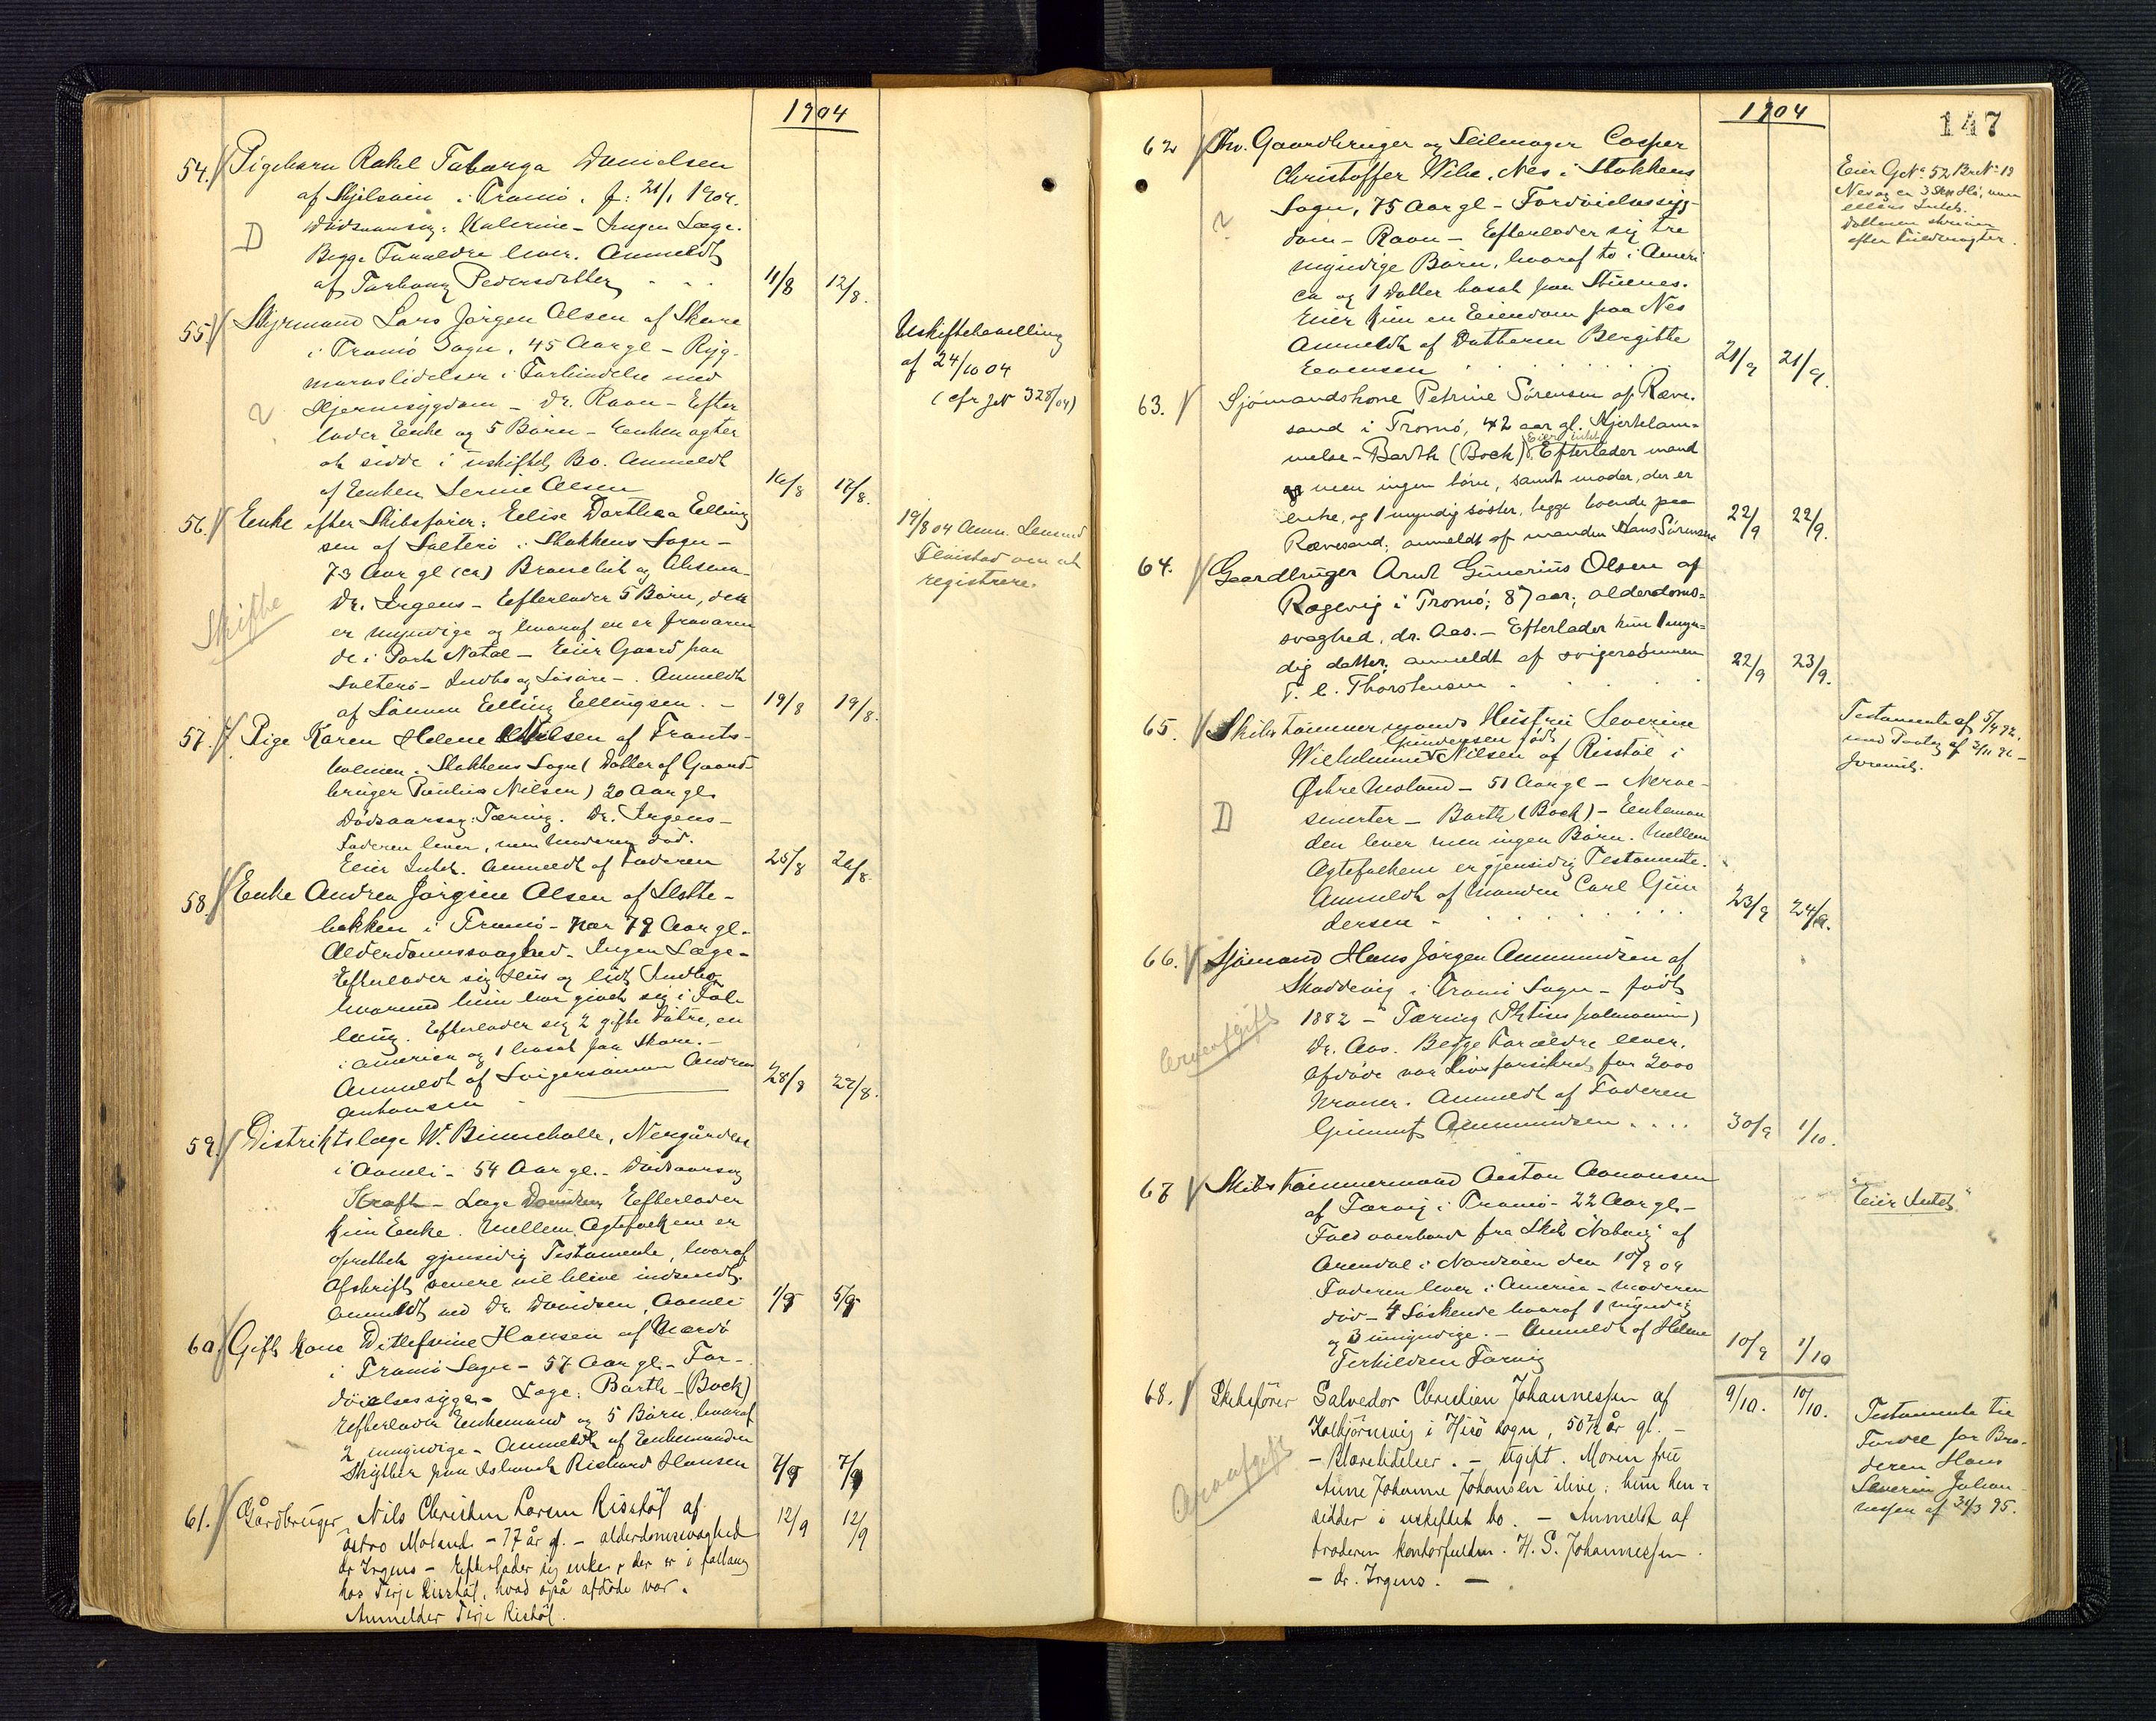 1904
54. Pigebarn Rakel Taborga Danielsen
af Skjelsvin i Tromö. f: 21/1 1904.
Dödsaarsag: Kolerine - Ingen Læge.
D
Begge Forældre lever. Anmeldt
af Torborg Pedersdatter
11/8 12/8.
55. Styrmand Lars Jörgen Olsen af Skare
i Tromö Sogn. 45 Aar gl - Ryg-
marvslidelser i Forbindelse med
Hjernesygdom - Dr. Raon - Efter
lader Enke og 5 Börn - Enken agter
at sidde i uskiftet Bo. Anmeldt
af Enken Serine Olsen
16/8 17/8.
Uskiftebevilling
af 24/10 04
(cfr JN 328/04)
56. Enke efter Skibsförer: Elise Dorthea Elling
sen af Salterö i Stokkens Sogn -
73 Aar gl (ca) Bronchit og Alisma
Dr. Irgens - Efterlader 5 Börn, der
er myndige og hvoraf en er fraværen
de i Port Natal - Eier Gaard paa
Salterö - Indbo og Lösöre -. Anmeldt
af Sönnen Elling Ellingsen. -
19/8 19/8.
Skifte
19/8 04 Anm. Lensmd
Fløistad om at
registrere.
57. Pige Karen Helene Nilsen af Frants-
holmen i Stokkens Sogn (Datter af Gaard-
bruger Paulus Nilsen) 20 Aar gl.
Dödsaarsag: Tæring. Dr. Irgens -
Faderen lever, men Moderen död.
Eier Intet. Anmeldt af Faderen
25/8 26/8.
58. Enke Andrea Jörgine Olsen af Slotte-
bakken i Tromö - nær 79 Aar gl -
Alderdomssvaghed - Ingen Læge -
Efterlader sig Hus og lidt Indbo
hvormed hun har givet sig i Fol-
laug. Efterlader sig 2 gifte Dötre, en
i America og 1 bosat paa Skare. -
Anmeldt af Svigersönnen Andreas
Antonsen
28/8 29/8.
59. Distriktslæge W. Binneballe, Nergården
i Aamli - 54 Aar gl. - Dödsaarsag
Kræft - Læge Davidsen Efterlader
kun Enke. Mellem Ægtefolkene er
oprettet gjensidig Testamente, hvoraf
Afskrift senere vil blive indsendt.
Anmeldt ved Dr. Davidsen, Aamli
1/9 5/9
60. Gift Kone Ditlefine Hansen af Mærdö
i Tromö Sogn - 57 Aar gl - For-
döielsessyge - Læge: Barth - (Bock)
Efterlader Enkemand og 5 Börn, hvoraf
2 umyndige - Anmeldt af Enkemanden
Skytter paa Island Richard Hansen
7/9 7/9
61. Gårdbruger Nils Christen Larsen Risstöl af
östre Moland - 77 år gl. - alderdomssvaghed
dr Irgens - Efterlader sig enke, der er i follaug
hos Terje Risstöl, hvad også afdöde var.
Anmelder Terje Ristöl.
12/9 12/9
1904
147
62. Fhv. Gaardbruger og Seilmager Casper
Christoffer Wilse, Nes i Stokkens
Sogn, 75 Aar gl - Fordöielsessyg-
dom - Raon - Efterlader sig tre
myndige Börn, hvoraf to i Ameri
ca og 1 Datter bosat paa Stuenes.
Eier kun en Eiendom paa Nes
Anmeldt af Datteren Bergitte
Evensen
21/9 21/9.
Eier GNo 52 BrNo 19
Nes og en
ellers Intet.
Datteren skriver
efter Fuldmagter.
63. Sjömandskone Petrine Sörensen af Ræve-
sand i Tromö, 42 aar gl. Hjertelam-
melse - Barth (Bock) Eier intet Efterlader mand
men ingen börn, samt moder, der er
enke, og 1 myndig söster, begge boende paa
Rævesand; anmeldt af manden Hans Sörensen
22/9 22/9.
64. Gaardbruger Arnt Gunerius Olsen af
Rægevig i Tromö; 87 aar; alderdoms-
svaghed, dr. Aas. - Efterlader kun 1 myn-
dig datter; anmeldt af svigersönnen
T. C. Thorstensen
22/9 23/9.
65. Skibstömmermands Hustru Severine
Wilhelmine Gundersen födt Nilsen af Risstöl i
Östre Moland - 51 Aar gl - Nerve-
smerter - Barth (Bock) - Enkeman
den lever men ingen Börn. Mellem
Ægtefolkene er gjensidig Testamente.
Anmeldt af Manden Carl Gun
dersen -
D
23/9 24/9.
Testamente af 5/4 92.
med Paateg. af 2/11 96 -
foreviist.
66. Sjömand Hans Jörgen Ammundsen af
Skaddevig i Tromö Sogn - födt
1882 - Tæring (Phtisis pulmonum)
Dr. Aas. Begge Forældre lever.
Afdöde var Livsforsikret for 2000
Kroner. Anmeldt af Faderen
Gunnuf Ammundsen ....
30/9 1/10.
Arveafgift
67. Skibstömmermand Anton Aanonsen
af Færvig i Tromö - 22 Aar gl -
Fald overbord fra Skib "Nabvig" af
Arendal i Nordsöen den 10/9 04
Faderen lever i America - Moderen
död - 4 Söskende hvoraf 1 myndig
og 3 umyndige. - Anmeldt af Helene
Terkildsen Færvig
10/9 1/10
"Eier Intet"
68. Skibsförer Salvedor Christian Johannessen af
Kolbjörnsvig i Hisö sogn, 50 1/2 år gl. -
- Blærelidelser. - ugift. Moren fru
Anne Johanne Johansen ilive; hun hen-
sidder i uskiftet bo. - Anmeldt af
broderen kontorfuldm. H. S. Johannessen.
- dr. Irgens. -
9/10. 10/10.
Arveafgift
Testamente til
Fordel for Bro-
deren Hans
Severin Johan-
nessen af 24/3 95.